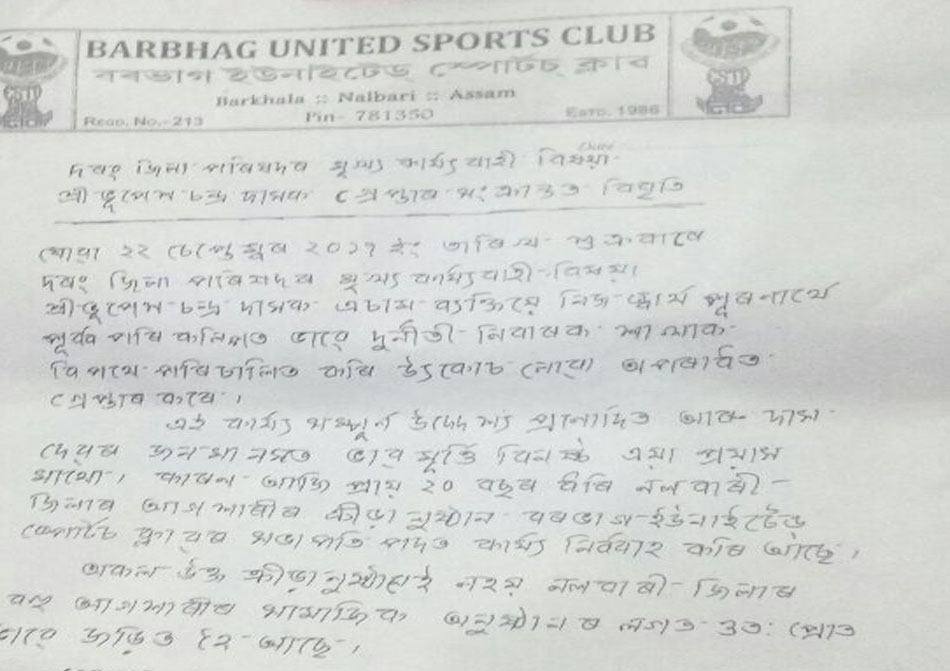 BARBHAG UNITED SPORTS CLUB
বৰভাগ ইউনাইটেড্ স্পোৰ্টচ ক্লাব
Barkhala :: Nalbari :: Assam
Regd. No.-213 Pin- 781350 Estd. 1986
দৰং জিলা পৰিষদৰ মূখ্য কাৰ্য্যবাহী বিষয়া
শ্ৰী ভূপেন চন্দ্ৰ দাসক গ্ৰেপ্তাৰ সংক্ৰান্তত বিবৃতি
যোৱা ২২ চেপ্তেম্বৰ ২০১৭ ইং তাৰিখ শুক্ৰবাৰে
দৰং জিলা পৰিষদৰ মূখ্য কাৰ্য্যবাহী বিষয়া
শ্ৰী ভূপেন চন্দ্ৰ দাসক এচাম ব্যক্তিয়ে নিজ স্বাৰ্থ পূৰণাৰ্থে
পূৰ্ব্ব পৰিকল্পিত ভাবে দুৰ্নীতী নিবাৰক শাখাক
বিপথে পৰিচালিত কৰি উৎকোচ লোৱা অপৰাধত
গ্ৰেপ্তাৰ কৰে।
এই কাৰ্য্য সম্পূৰ্ণ উদ্দেশ্য প্ৰনোদিত আৰু দাস
দেৱৰ জনমানসত ভাৱমূৰ্ত্তি বিনষ্ট এয়া প্ৰয়াস
মাথো। কাৰণ আজি প্ৰায় ২০ বছৰ ধৰি নলবাৰী
জিলাৰ আগশাৰীৰ ক্ৰীড়ানুষ্ঠান বৰভাগ ইউনাইটেড
স্পোৰ্টচ ক্লাবৰ সভাপতি পদত কাৰ্য্য নিৰ্ব্বাহ কৰি আছে।
অকল উক্ত ক্ৰীড়ানুষ্ঠানেই নহয় নলবাৰী জিলাৰ
বহু আগশাৰীৰ সামাজিক অনুষ্ঠানৰ লগত ওতঃ প্ৰোত
ভাবে জড়িত হৈ আছে।